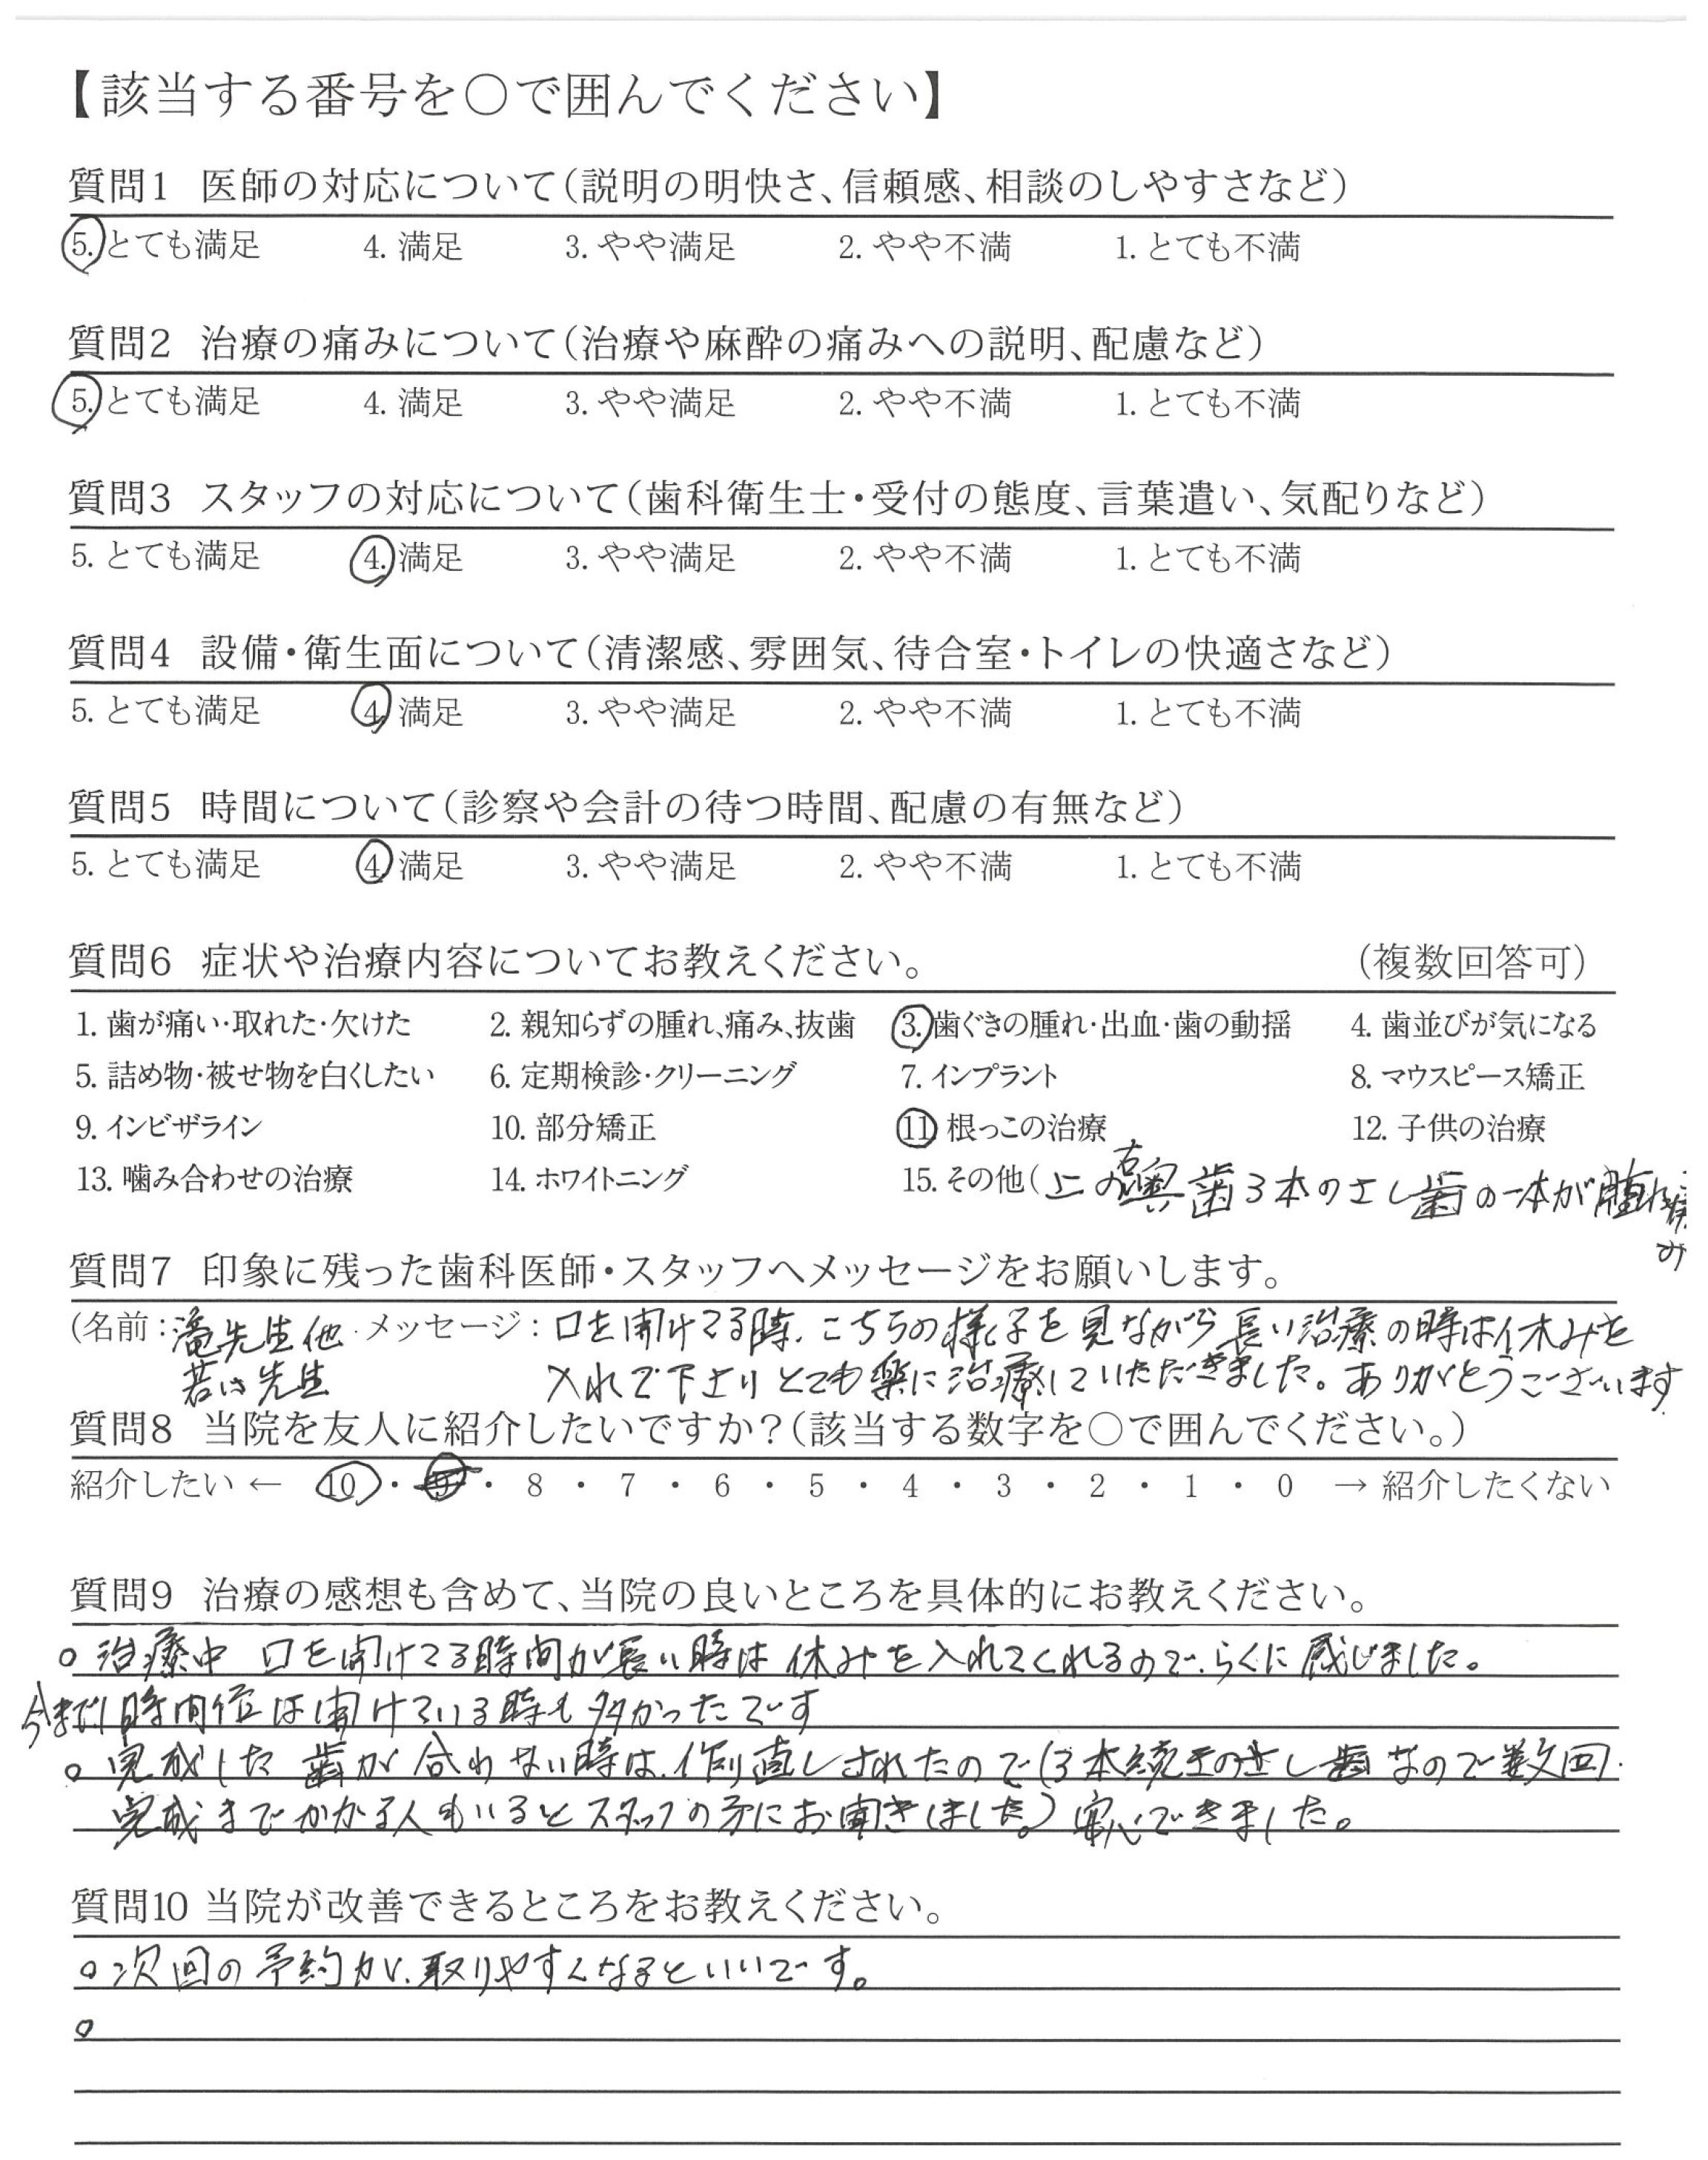 【該当する番号を○で囲んでください】
質問1 医師の対応について(説明の明快さ、信頼感、相談のしやすさなど)
5. とても満足 4. 満足 3. やや満足 2. やや不満 1. とても不満
質問2 治療の痛みについて(治療や麻酔の痛みへの説明、配慮など)
5. とても満足 4. 満足 3. やや満足 2. やや不満 1. とても不満
質問3 スタッフの対応について(歯科衛生士・受付の態度、言葉遣い、気配りなど)
5. とても満足 4. 満足 3. やや満足 2. やや不満 1. とても不満
質問4 設備・衛生面について(清潔感、雰囲気、待合室・トイレの快適さなど)
5. とても満足 4. 満足 3. やや満足 2. やや不満 1. とても不満
質問5 時間について(診察や会計の待つ時間、配慮の有無など)
5. とても満足 4. 満足 3. やや満足 2. やや不満 1. とても不満
質問6 症状や治療内容についてお教えください。 (複数回答可)
1. 歯が痛い・取れた・欠けた 2. 親知らずの腫れ、痛み、抜歯 3. 歯ぐきの腫れ・出血・歯の動揺 4. 歯並びが気になる
5. 詰め物・被せ物を白くしたい 6. 定期検診・クリーニング 7. インプラント 8. マウスピース矯正
9. インビザライン 10. 部分矯正 11. 根っこの治療 12. 子供の治療
13. 噛み合わせの治療 14. ホワイトニング 15. その他(上の右奥歯3本のさし歯の一本が腫れ痛み
質問7 印象に残った歯科医師・スタッフへメッセージをお願いします。
(名前:滝先生他 メッセージ:口を開けてる時、こちらの様子を見ながら長い治療の時は休みを
若い先生 入れて下さりとても楽に治療していただきました。ありがとうございます
質問8 当院を友人に紹介したいですか?(該当する数字を○で囲んでください。)
紹介したい ← 10 ・ 9 ・ 8 ・ 7 ・ 6 ・ 5 ・ 4 ・ 3 ・ 2 ・ 1 ・ 0 → 紹介したくない
質問9 治療の感想も含めて、当院の良いところを具体的にお教えください。
○治療中 口を開けてる時間が長い時は休みを入れてくれるので、らくに感じました。
今まで1時間位は開けている時も多かったです
○完成した歯が合わない時は、作り直しされたので(3本続きのさし歯なので数回
完成までかかる人もいるとスタッフの方にお聞きしました。)安心できました。
質問10 当院が改善できるところをお教えください。
○次回の予約が、取りやすくなるといいです。
○